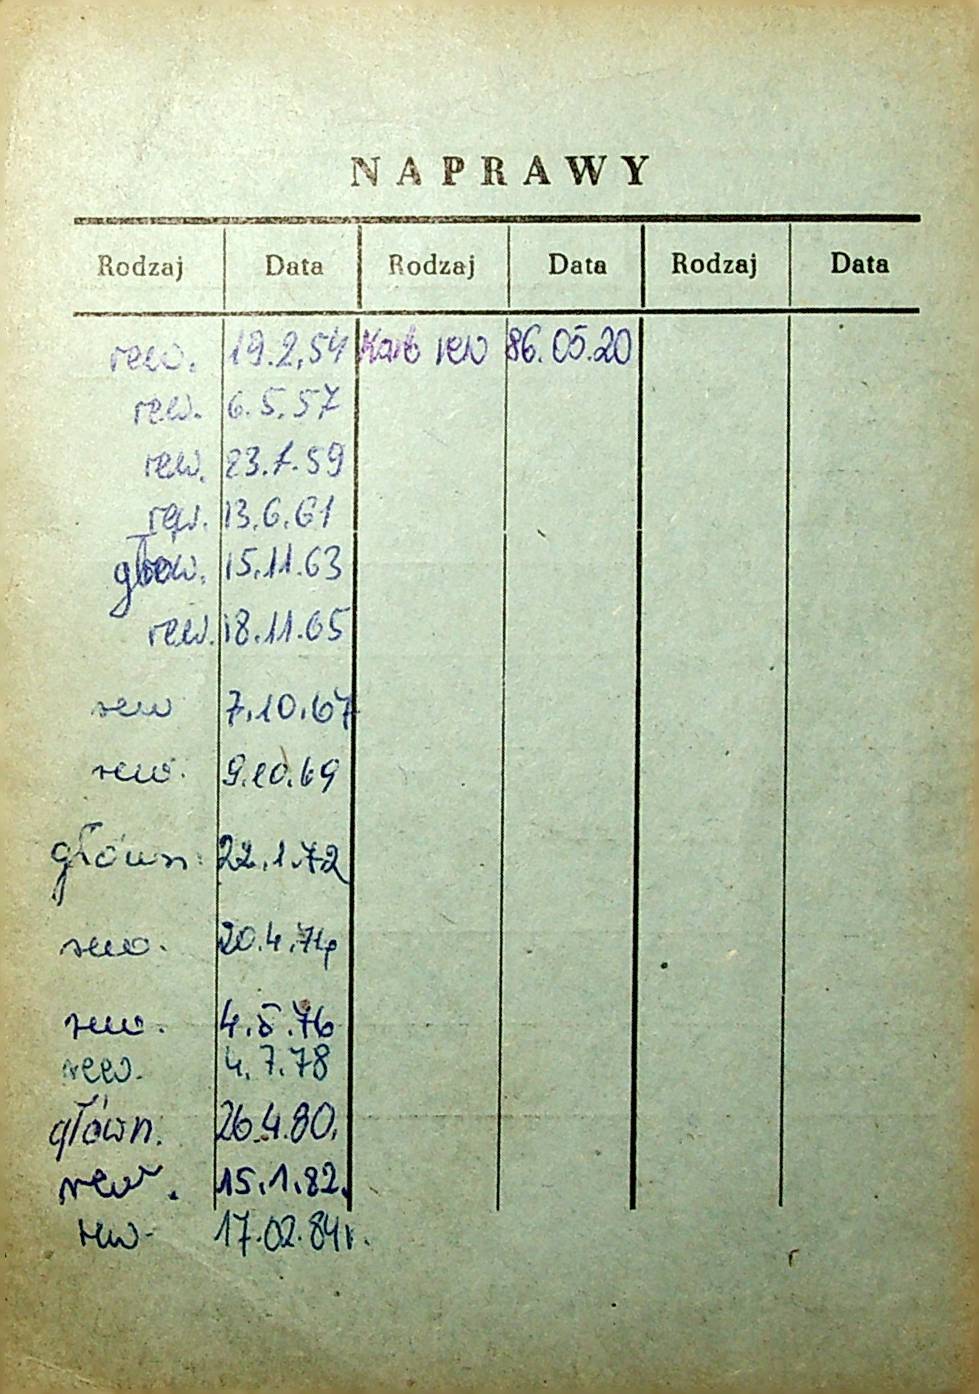 NAPRAWY
Rodzaj Data Rodzaj Data Rodzaj Data
rew. 19.2.54 rew 86.05.20
rew. 6.5.57
rew. 23.7.59
rew. 13.6.61
głow. 15.11.63
rew. 18.11.65
rew 7.10.67
rew. 9.10.69
główn. 22.1.72
rew. 20.4.74
rew. 4.5.76
rew. 4.7.78
główn. 26.4.80.
rew. 15.1.82.
rew. 17.02.84r.